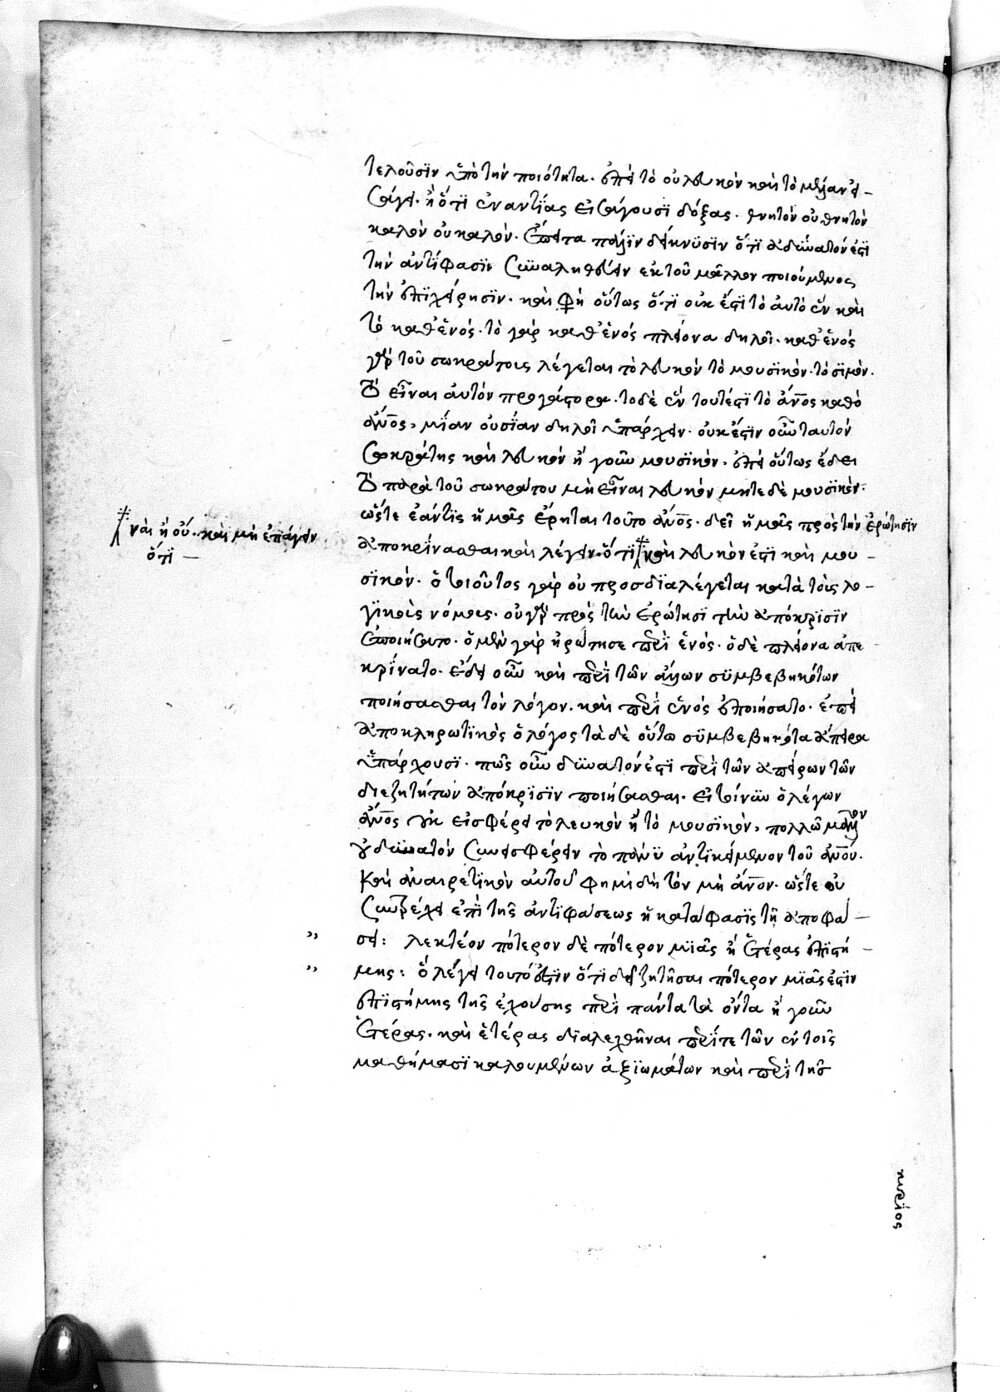 τελοῦσϊν ὑπὸ τὴν ποιότητα. ἐπεὶ τὸ οὐ λευκὸν καὶ τὸ μέλαν εἰ-
σάγει. ἢ ὅτϊ ἐναντίας εἰσάγουσϊ δόξας. θνητὸν οὐ θνητὸν
καλὸν οὐ καλόν. ἔπειτα πάλϊν δείκνυσϊν ὅτϊ ἀδύνατόν ἐστϊ
τὴν ἀντίφασϊν συναληθεύειν ἐκ τοῦ μᾶλλον ποιούμενος
τὴν ἐπϊχείρησϊν. καὶ φησὶ οὕτως ὅτϊ οὐκ ἔστϊ τὸ αὐτὸ ἓν καὶ
τὸ καθ' ἑνός. τὸ γὰρ καθ' ἑνὸς πλείονα δηλοῖ. καθ' ἑνὸς
γὰρ τοῦ σωκράτους λέγεται τὸ λευκὸν τὸ μουσϊκὸν. τὸ σϊμόν.
τὸ εἶναι αὐτὸν προγάστορα. τὸ δὲ ἓν τουτέστϊ τὸ ἄνος καθὸ
ἄνος, μΐαν οὐσΐαν δηλοῖ ὑπάρχειν. οὐκ ἔστϊν οὖν ταυτὸν
σωκράτης καὶ λευκὸν ἢ γοῦν μουσϊκὸν. ἐπεὶ οὕτως ἔδει
τὸ παρὰ τοῦ σωκράτου μὴ εἶναι λευκὸν μήτε δὲ μουσϊκὸν.
ὥστε ἐάν τϊς ἡμᾶς ἔρηται τοῦτο ἄνος. δεῖ ἡμᾶς πρὸς τὴν ἐρώτησϊν
ἀποκρΐνασθαι καὶ λέγειν. ὅτϊ καὶ λευκὸν ἐστϊ καὶ μου-
σϊκὸν. ὁ τοιοῦτος γὰρ οὐ προσδϊαλέγεται κατὰ τοὺς λο-
γϊκοὺς νόμους. οὐ γὰρ πρὸς τὴν ἐρώτησϊ τὴν ἀπόκρϊσϊν
ἐποιήσατο. ὁ μὲν γὰρ ἠρώτησε περὶ ἑνός. ὁ δὲ πλείονα ἀπε
κρΐνατο. ἔδει οὖν καὶ περὶ τῶν ἄλλων συμβεβηκότων
ποιήσασθαι τὸν λόγον. καὶ περὶ ἑνὸς ἐποιήσατο. ἐπεὶ
ἀποκληρωτϊκὸς ὁ λόγος τὰ δὲ οὕτω συμβεβηκότα ἄπειρα
ὑπάρχουσϊ. πῶς οὖν δυνατόν ἐστϊ περὶ τῶν ἀπείρων τῶν
διεζητήτων ἀπόκρϊσϊν ποιήσασθαι. εἰ τοίνυν ὁ λέγων
ἄνος οὐκ εἰσφέρει τὸ λευκὸν ἢ τὸ μουσϊκὸν, πολλῶ μᾶλλον
ἀδύνατον συνεισφέρειν τὸ πάνυ ἀντϊκείμενον τοῦ ἄνου.
καὶ ἀναιρετϊκὸν αὐτοῦ φημὶ δὴ τὸν μὴ ἄνον. ὥστε οὐ
συντρέχει ἐπὶ τῆς ἀντϊφάσεως ἡ κατάφασϊς τῆ ἀποφά-
σει: λεκτέον πότερον δὲ πότερον μϊᾶς ἢ ἑτέρας ἐπϊστή-
μης: ὃ λέγει τοῦτό ἐστϊν ὅτϊ δεῖ ζητῆσαι πότερον μϊᾶς ἐστϊν
ἐπϊστήμης τῆς ἐχούσης περὶ πάντα τὰ ὄντα ἢ γοῦν
ἑτέρας. καὶ ἑτέρας δϊαλεχθῆναι περΐ τε τῶν ἐν τοῖς
μαθήμασϊ καλουμένων ἀξϊωμάτων καὶ περὶ τῆς
ναὶ ἢ οὔ. καὶ μὴ ἐπάγειν
ὅτϊ —
κυρίος